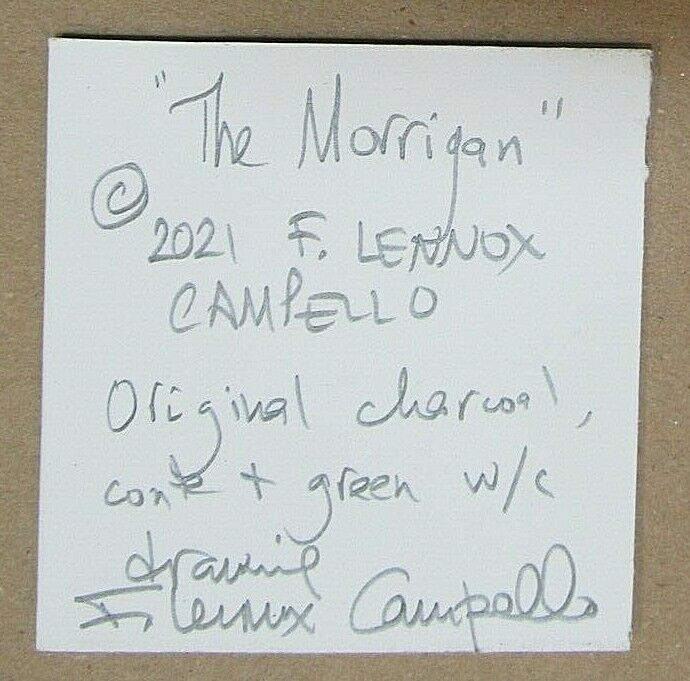 "The Morrigan"
© 2021 F. LENNOX
CAMPELLO
Original charcoal,
conte + green w/c
drawing
F. Lennox Campello